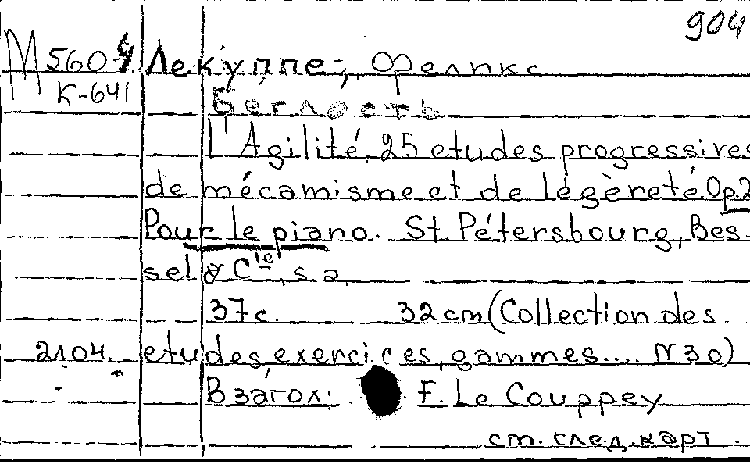 904
М 560-4 Лекуппе-, Феликс
К-641 Беглость
L'Agilité, 25 etudes progressives
de mécamisme et de légèreté Op2
Pour le piano. St. Pétersbourg, Bes-
sel & Cie, s.a.
37с. 32 cm (Collection des
2104. etudes, exercices, gammes.... N30)
В загол: F. Le Couppey
см. след. карт.